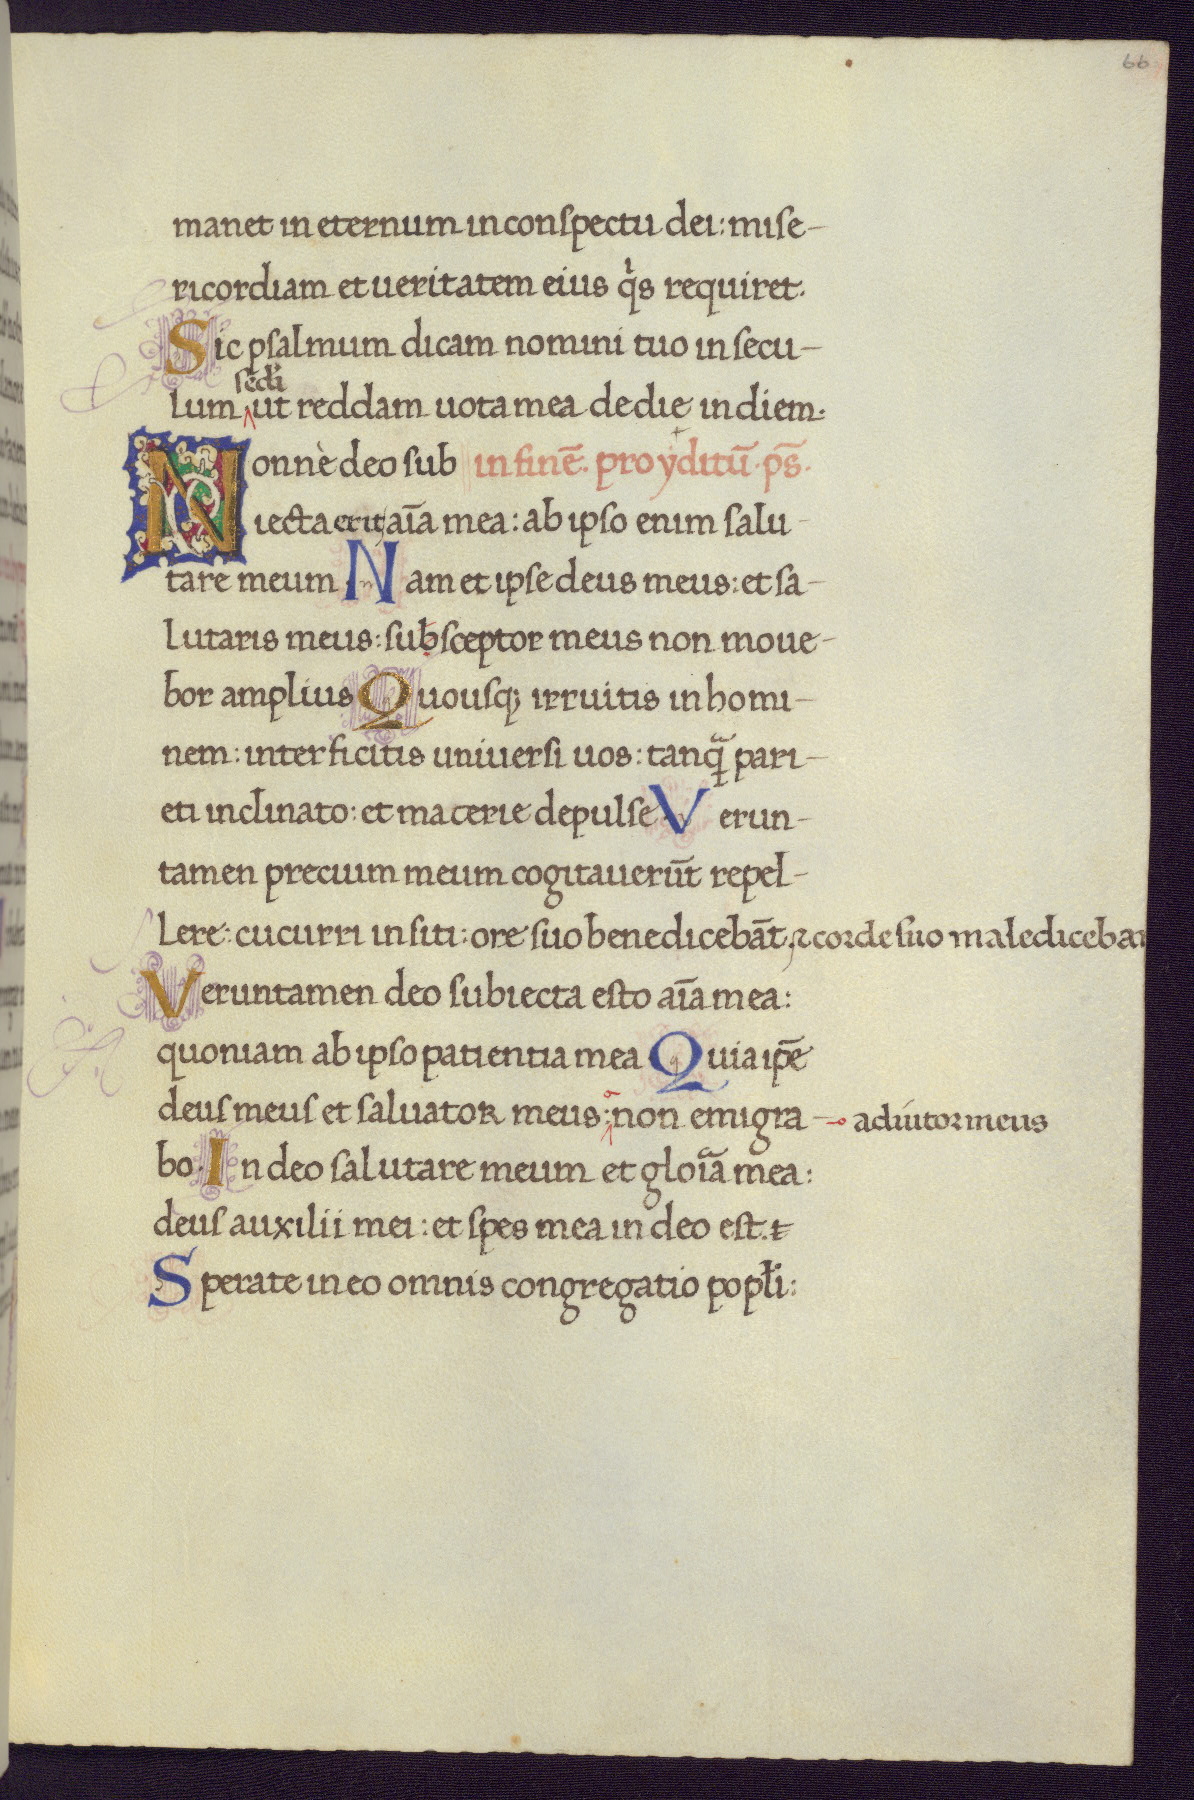 66
manet in eternum in conspectu dei: mise-
ricordiam et ueritatem eius q̇s requiret.
Sic psalmum dicam nomini tuo in secu-
lum ut reddam uota mea de die in diem:
Nonnè deo sub in finē. pro yditū. ps̄.
iecta erit aīa mea: ab ipso enim salu-
tare meum Nam et ipse deus meus: et sa-
lutaris meus: subsceptor meus non moue-
bor amplius Quousq; irruitis in homi-
nem: interficitis uniuersi uos: tanꝙ̃ pari-
eti inclinato: et macerie depulse Verun-
tamen precium meum cogitauerūt repel-
lere: cucurri in siti: ore suo benedicebāt ⁊ corde suo maledicebā
Veruntamen deo subiecta esto aīa mea:
quoniam ab ipso patientia mea Quia ip̄e
deus meus et saluator meus: non emigra- adiutor meus
bo. In deo salutare meum et gloīa mea:
deus auxilii mei: et spes mea in deo est.
Sperate in eo omnis congregatio popl̄i: